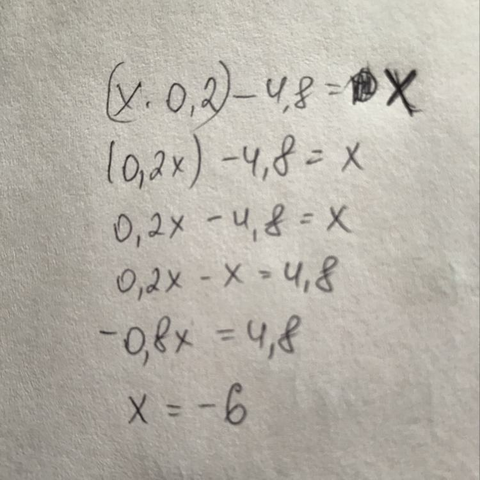 (x · 0,2) - 4,8 = x
(0,2x) - 4,8 = x
0,2x - 4,8 = x
0,2x - x = 4,8
-0,8x = 4,8
x = -6